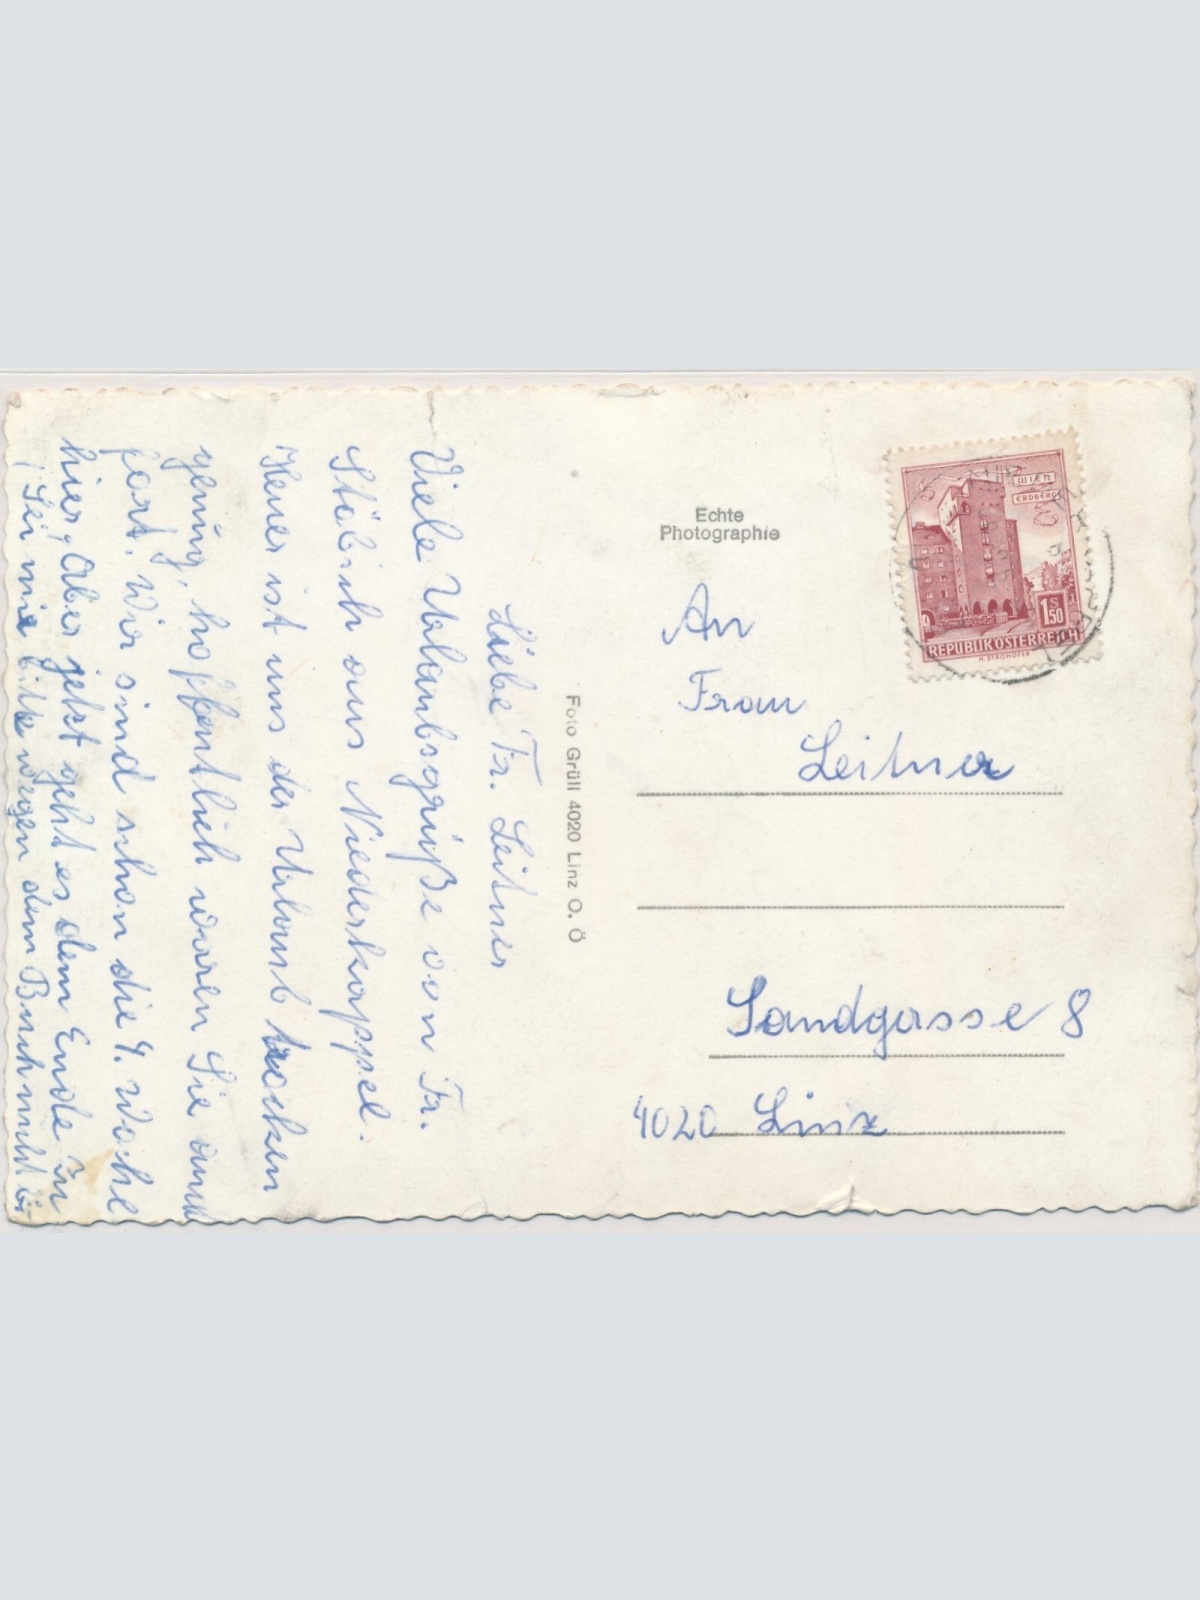 Liebe Fr. Leitner
Viele Urlaubsgrüße von Fr.
Stöbich aus Niederkappel.
Heuer ist uns der Urlaub trocken
genug, hoffentlich waren Sie auch
fort. Wir sind schon die 4. Woche
hier, aber jetzt geht es dem Ende zu
Sei mir bitte wegen dem nicht
Foto Grüll 4020 Linz O. Ö
Echte
Photographie
An
Frau
Leitner
Sandgasse 8
4020 Linz
WIEN
ERDBERG
1 S 50
REPUBLIK ÖSTERREICH
H. STROHOFER